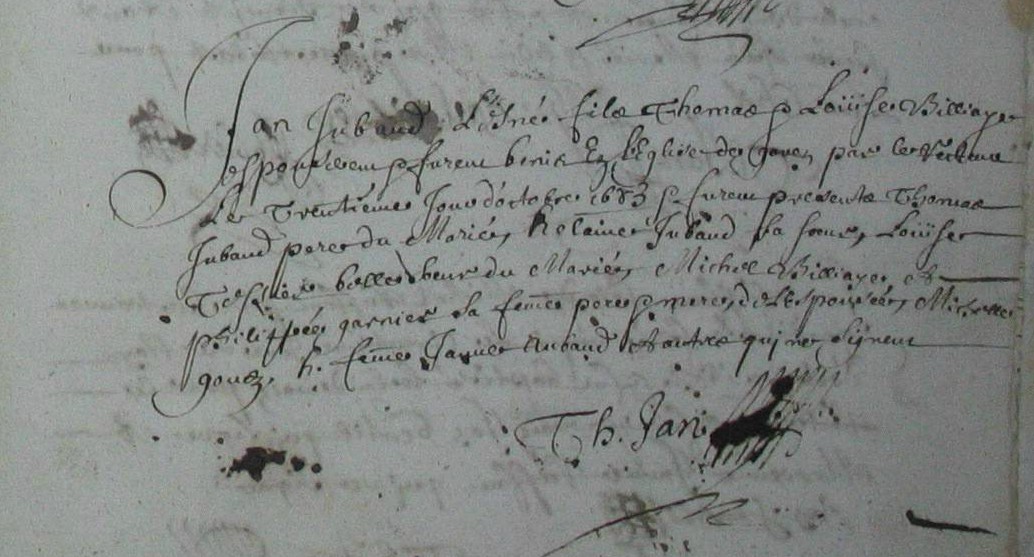 Jan Jubaud L'esné fils Thomas & Louise Billiaye
espouserent & furent benis En l'Eglise de gaven par le Recteur
Le Trentieme Jour d'octobre 1683 & furent presents Thomas
Jubaud pere du Marié, helaine Jubaud sa soeur, Louise
Tessier belle soeur du Marié, Michel Billiaye et
Philippée garnier sa femme pere & mere de L'espousée, Michelle
gouez, h. femme Janne Aubaud et autres qui ne signent
Th. Jan